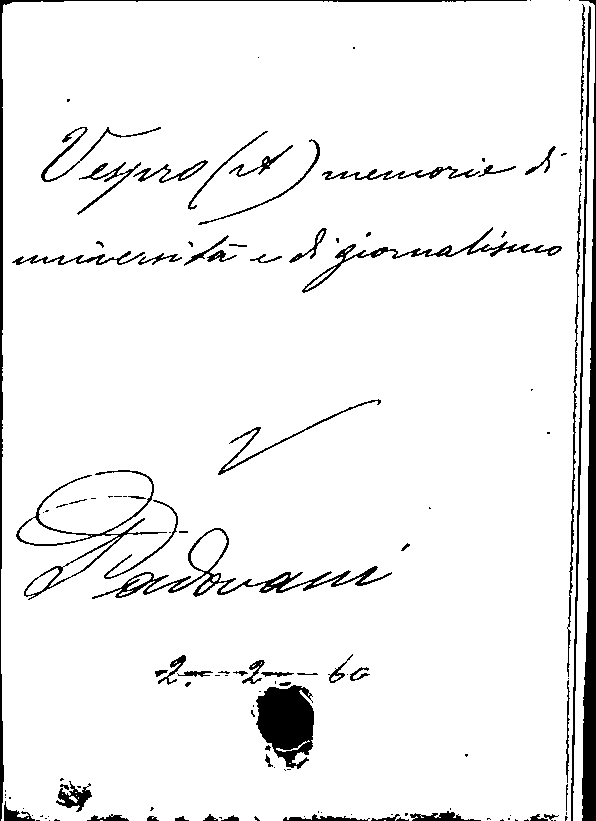 Vespro (A) memorie di
università e di giornalismo
V
Padovani
2. - 2 - 60